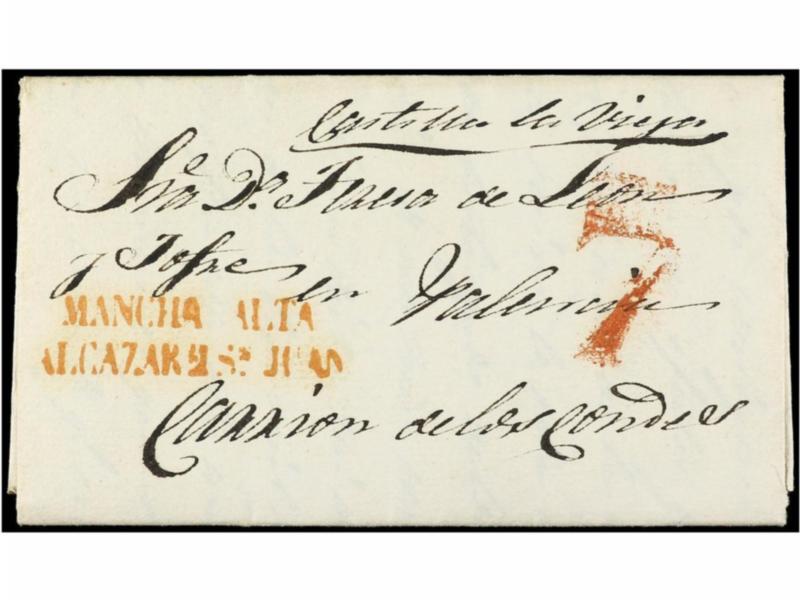 Castilla la Vieja
Sra. Da. Teresa de Leon
y Jofre en Palencia
7
MANCHA ALTA
ALCAZAR DE Sn. JUAN
Carrion de los Condes